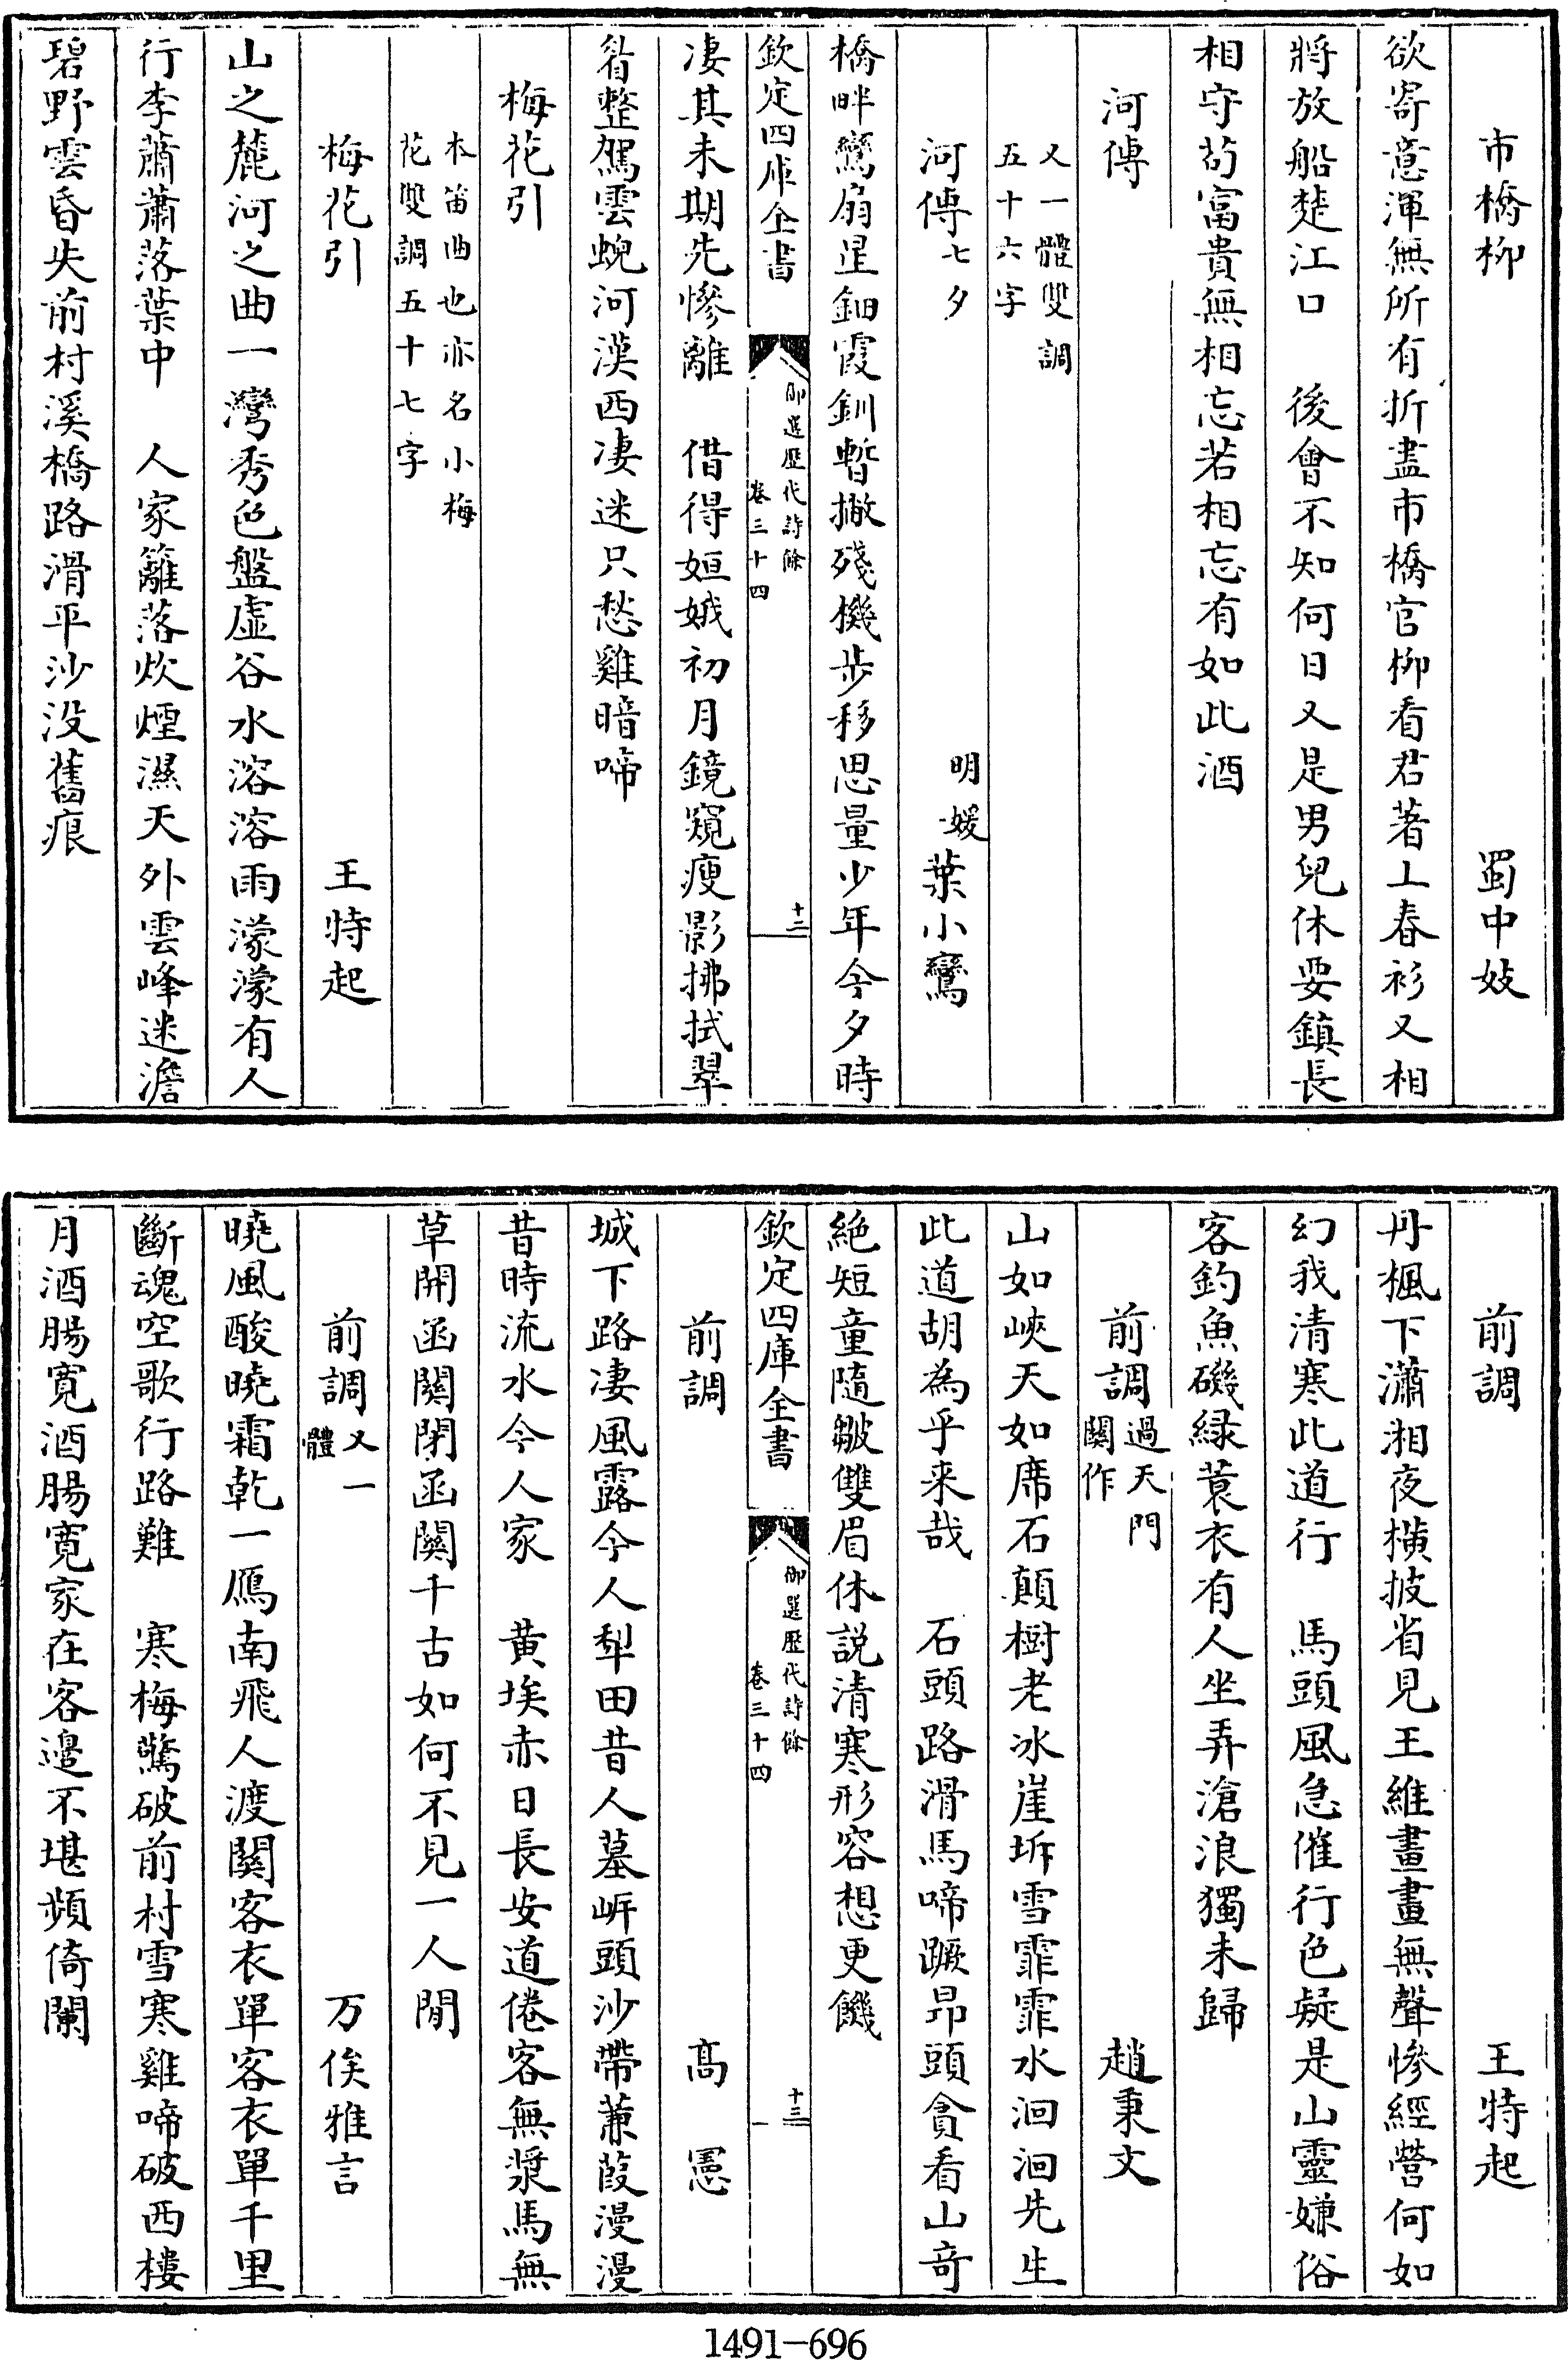 市橋柳　蜀中妓
欲寄意渾無所有折盡市橋官柳看君著上春衫又相
將放船楚江口　後會不知何日又是男兒休要鎮長
相守茍富貴無相忘若相忘有如此酒
河傳
又一體雙調
五十六字
河傳七夕　明媛葉小鸞
橋畔鸞扇星鈿霞釧暫撇殘機步移思量少年今夕時
欽定四庫全書
御選歷代詩餘
卷三十四
十二
凄其未期先慘離　借得姮娥初月鏡窺瘦影拂拭翠
眢整駕雲蜺河漢西凄迷只愁雞暗啼
梅花引
本笛曲也亦名小梅
花雙調五十七字
梅花引　王特起
山之麓河之曲一灣秀色盤虛谷水溶溶雨濛濛有人
行李蕭蕭落葉中　人家籬落炊煙濕天外雲峰迷澹
碧野雲昏失前村溪橋路滑平沙没舊痕
前調　王特起
丹楓下瀟湘夜橫披省見王維畫畫無聲慘經營何如
幻我清寒此道行　馬頭風急催行色疑是山靈嫌俗
客釣魚磯緑蓑衣有人坐弄滄浪獨未歸
前調過天門關作　趙秉文
山如峽天如席石顛樹老冰崖坼雪霏霏水洄洄先生
此道胡為乎来哉　石頭路滑馬啼蹶昻頭貪看山竒
絶短童隨皺雙眉休説清寒形容想更饑
欽定四庫全書
御選歷代詩餘
卷三十四
十三
前調　髙憲
城下路凄風露今人犁田昔人墓岍頭沙帶蒹葭漫漫
昔時流水今人家　黄埃赤日長安道倦客無漿馬無
草開函關閉函關千古如何不見一人閒
前調又一體　万俟雅言
曉風酸曉霜乾一鴈南飛人渡關客衣單客衣單千里
斷魂空歌行路難　寒梅驚破前村雪寒雞啼破西樓
月酒腸寛酒腸寛家在客邉不堪頻倚闌
1491-696